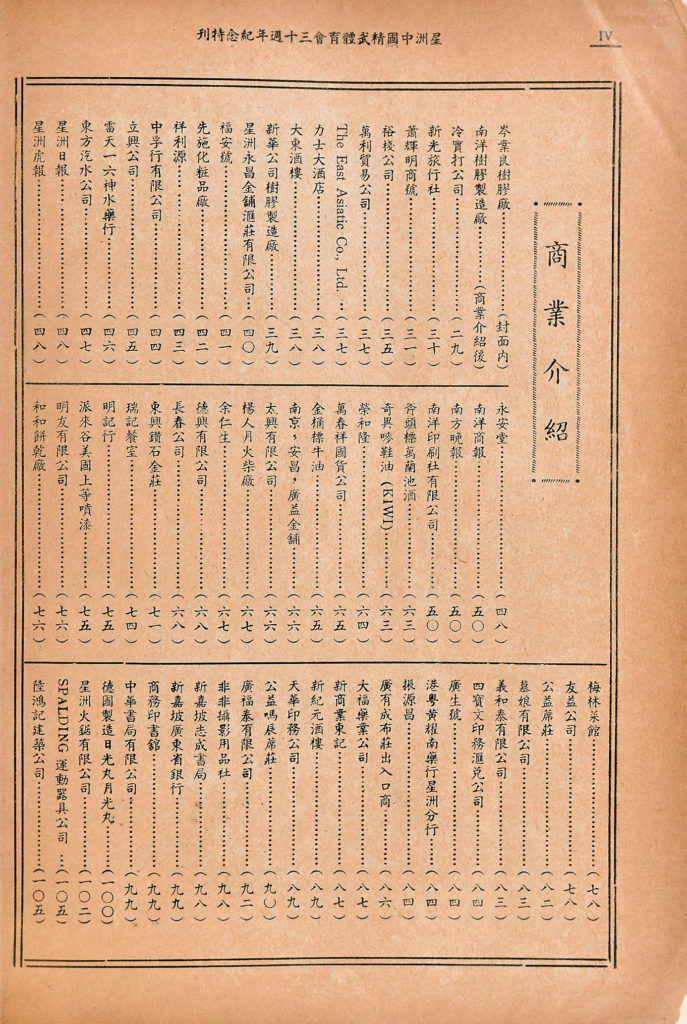 IV
星洲中國精武體育會三十週年紀念特刊
商業介紹
岑業良樹膠廠……(封面內)
南洋樹膠製造廠……(商業介紹後)
冷實打公司……(二九)
新光旅行社……(三十)
蕭輝明商號……(三一)
裕棧公司……(三五)
萬利貿易公司……(三七)
The East Asiatic Co., Ltd. …(三七)
力士大酒店……(三八)
大東酒樓……(三八)
新華公司樹膠製造廠……(三九)
星洲永昌金鋪滙莊有限公司…(四〇)
福安號……(四一)
先施化粧品廠……(四二)
祥利源……(四三)
中孚行有限公司……(四四)
立興公司……(四五)
雷天一六神水藥行……(四六)
東方汽水公司……(四七)
星洲日報……(四八)
星洲虎報……(四八)
永安堂……(四八)
南洋商報……(五〇)
南方晚報……(五〇)
南洋印刷社有限公司……(五〇)
斧頭標萬蘭池酒……(六三)
奇異嘜鞋油(KIWI)……(六三)
榮和隆……(六四)
萬春祥國貨公司……(六五)
金桶標牛油……(六五)
南京,安昌,廣益金鋪……(六六)
太興有限公司……(六六)
楊人月火柴廠……(六七)
余仁生……(六七)
德興有限公司……(六八)
長春公司……(六八)
東興鑽石金莊……(七一)
瑞記餐室……(七四)
明記行……(七五)
派來谷美國上等噴漆……(七五)
明友有限公司……(七六)
和和餅乾廠……(七六)
梅林菜館……(七八)
友益公司……(七八)
公益蓆莊……(八二)
慕娘有限公司……(八三)
義和泰有限公司……(八三)
四寶文印務滙兌公司……(八四)
廣生號……(八四)
港粵黃耀南藥行星洲分行……(八四)
振源昌……(八四)
廣有成布莊出入口商……(八六)
大福藥業公司……(八七)
新商業東記……(八七)
新紀元酒樓……(八九)
天華印務公司……(八九)
公益嗎辰蓆莊……(九〇)
廣福泰有限公司……(九二)
非非攝影用品社……(九八)
新嘉坡志成書局……(九八)
新嘉坡廣東省銀行……(九九)
商務印書館……(九九)
中華書局有限公司……(九九)
德國製造日光丸月光丸……(一〇〇)
星洲火鋸有限公司……(一〇二)
SPALDING 運動器具公司 …(一〇五)
陸鴻記建築公司……(一〇五)